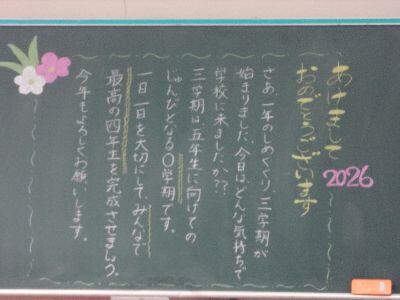 あけまして
おめでとうございます
2026
さあ、一年のしめくくり、三学期が
始まりました。今日はどんな気持ちで
学校に来ましたか??
三学期は五年生に向けての
じゅんびとなる〇学期です。
一日一日を大切にして、みんなで
最高の四年生を完成させましょう。
今年もよろしくお願いします。